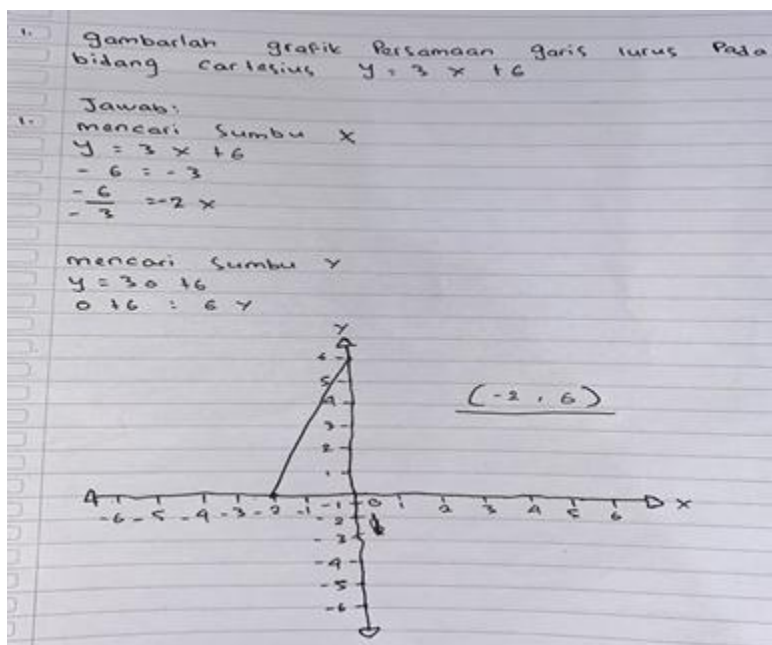 1. Gambarlah grafik Persamaan garis lurus Pada
bidang cartesius y = 3 x + 6
Jawab:
1. mencari Sumbu X
y = 3 x + 6
- 6 = - 3
- 6 / - 3 = -2 x
mencari Sumbu Y
y = 3 0 + 6
0 + 6 = 6 Y
Y
6
5
4
3
2
1
(-2 , 6)
-6 -5 -4 -3 -2 -1 0 1 2 3 4 5 6 X
-1
-2
-3
-4
-5
-6